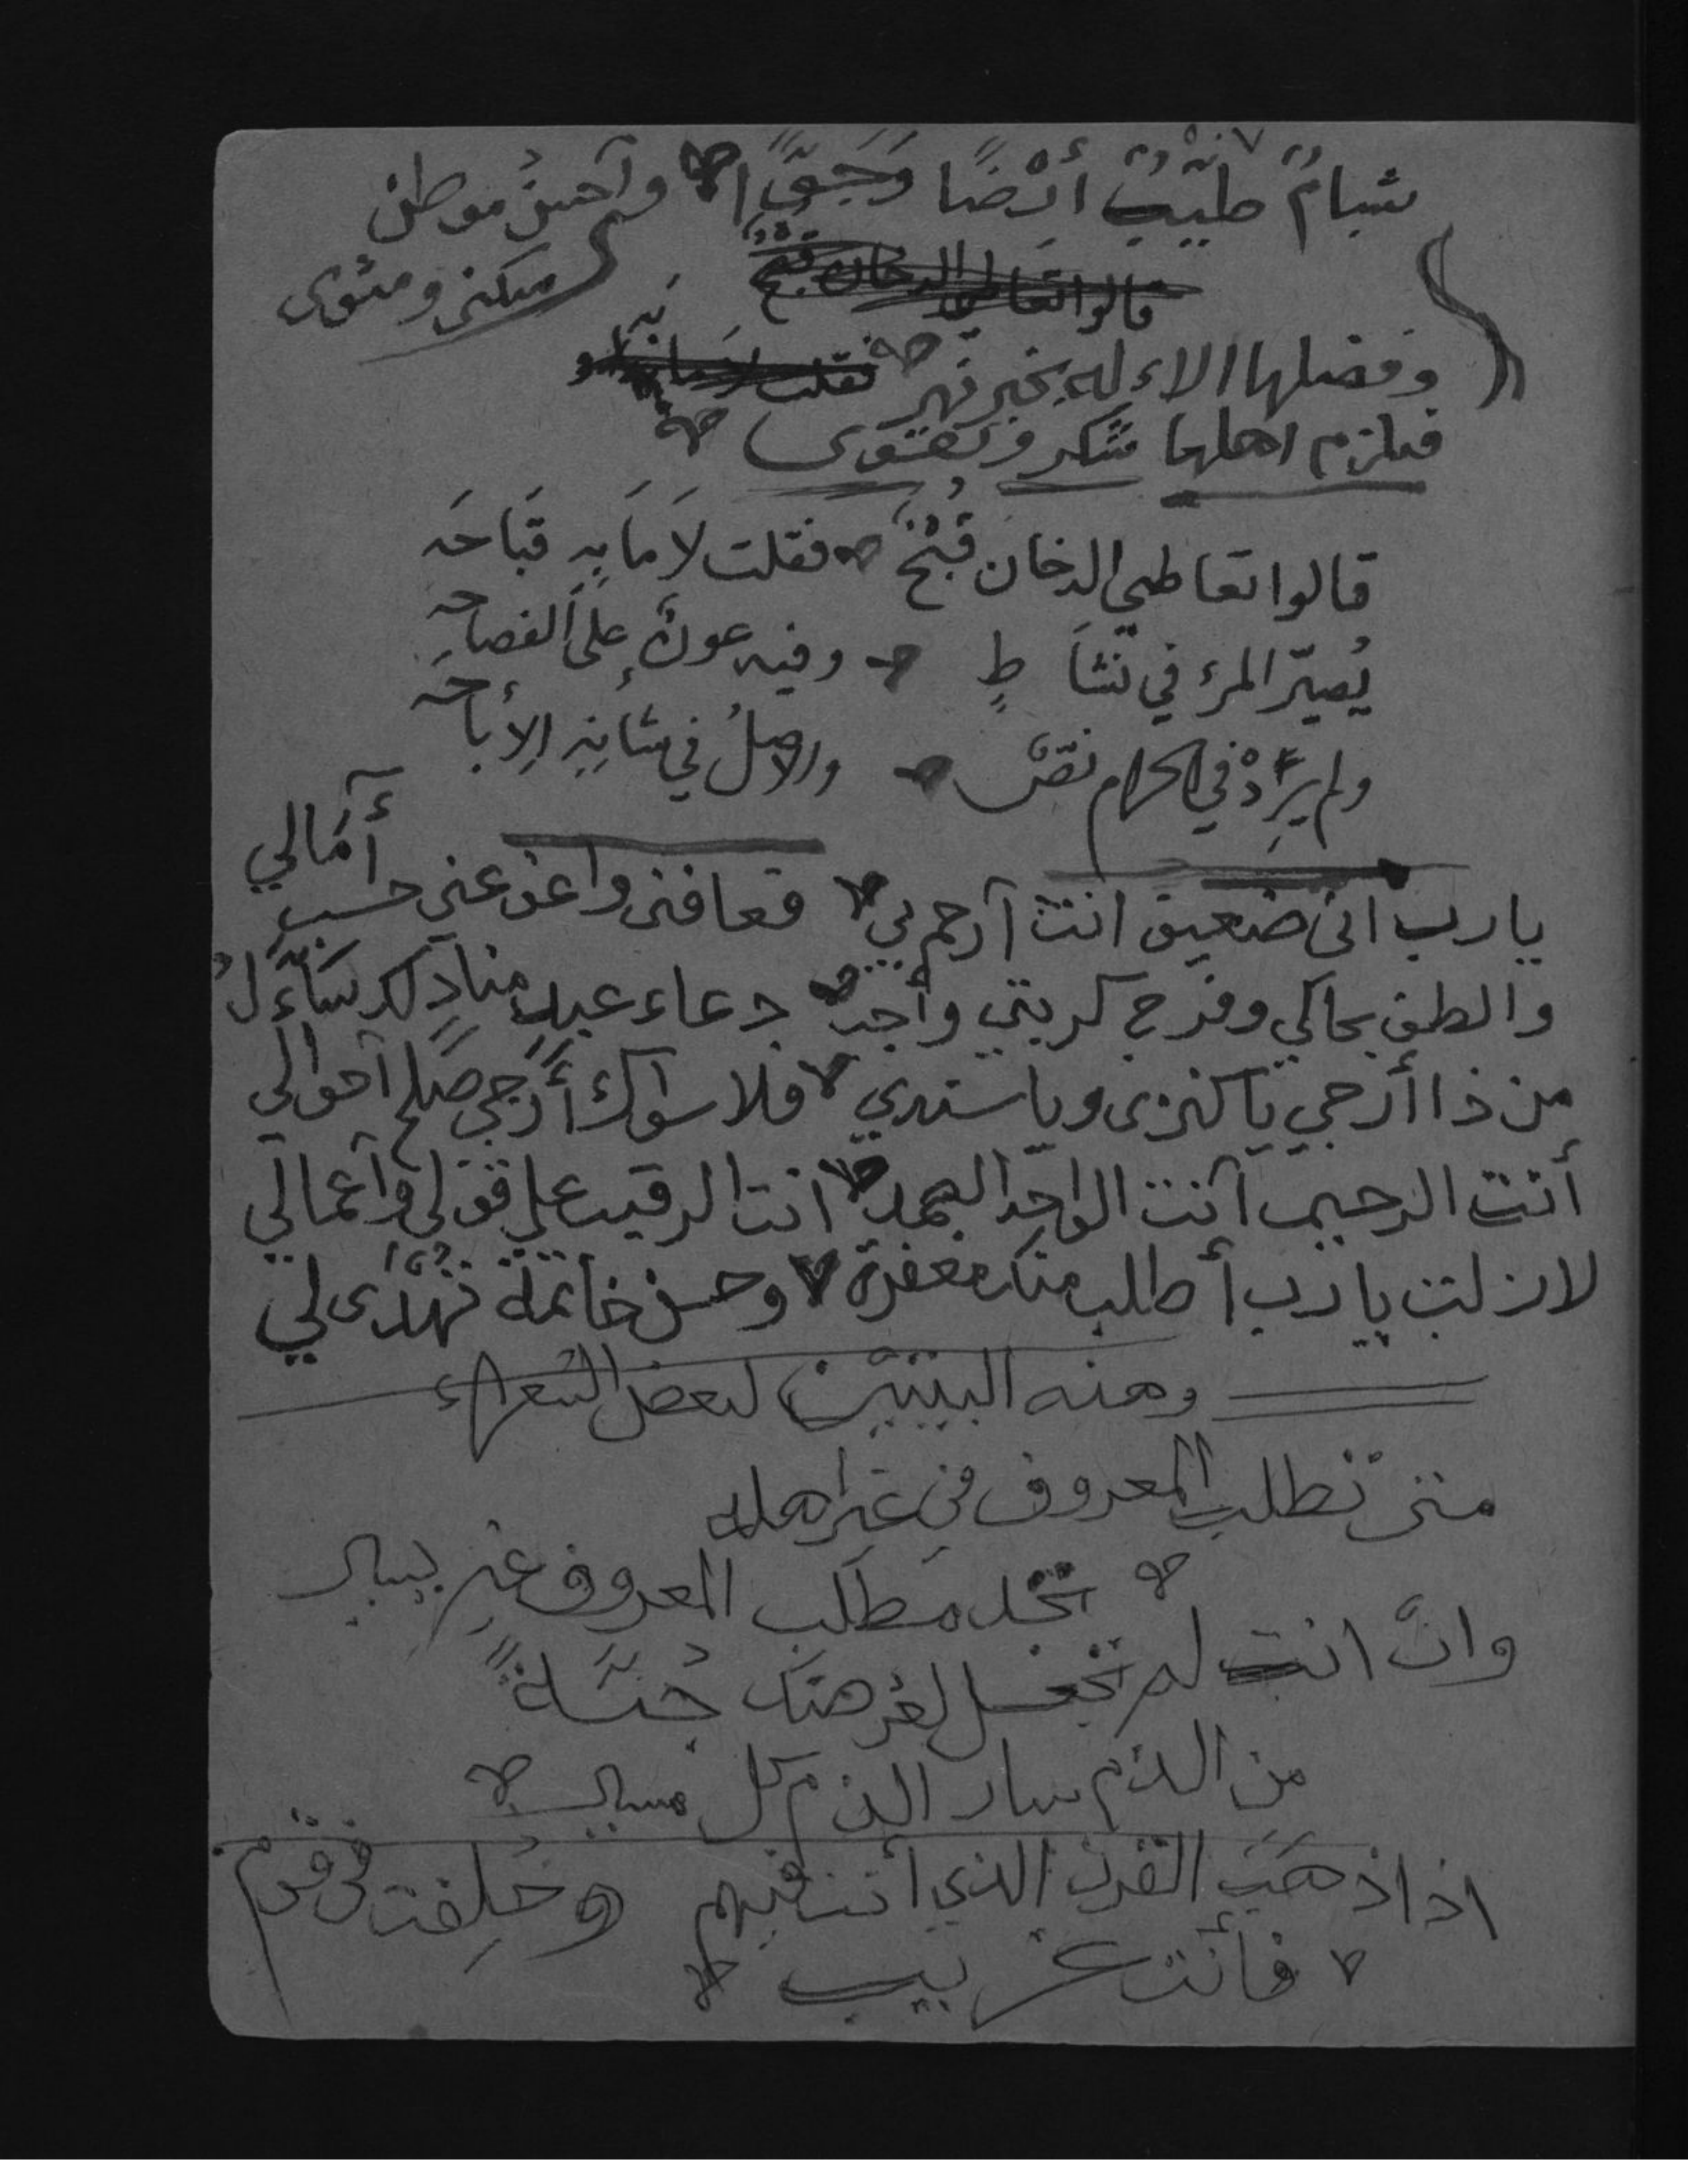 شبامٌ طيّبٌ أرْضًا وَجَوًّا وأحسنُ موطن
سكنى ومثوى
قالوا تعاطي الدخان قبح
وفضلها الاءله بخير نهر فقلت لا مابه
فيلزم اهلها شكر وتقوى
قالوا تعاطي الدخان قُبْحٌ فقلت لاَ مَا بِهِ قبَاحَه
يُصيّر المرء في نشَاطٍ وفيه عونٌ على الفصاحه
ولم يَرِدْ في الحرام نصّ والاصلُ في شأنِهِ الإباحه
يارب انى ضعيف انت أرحم بي فعافنى واعف عني حسب أمَالي
والطف بحالي وفرج كربتي وأجب دعاء عبدٍ منادٍ لك سَأّل
من ذا أرجي يا كنزى ويا سندي فلا سواك أُرَجي صلح احوالي
أنت الرحيم انت الواحد الصمد انت الرقيب على قولى وأعمالي
لازلت يارب أطلب منك مغفرة وحسن خاتمة تهْدَى لي
وهذه البيتين لبعض الشعراء
متى تطلب المعروف في غير اهله
تجد مطلب المعروف غير يسير
وان انت لم تجعل لعرضك جُنّةً
من الذم سار الذم كل مسير
اذا ذهَبَ القرن الذي أنت فيهم وخُلِفت في قوم
فأنت غريب